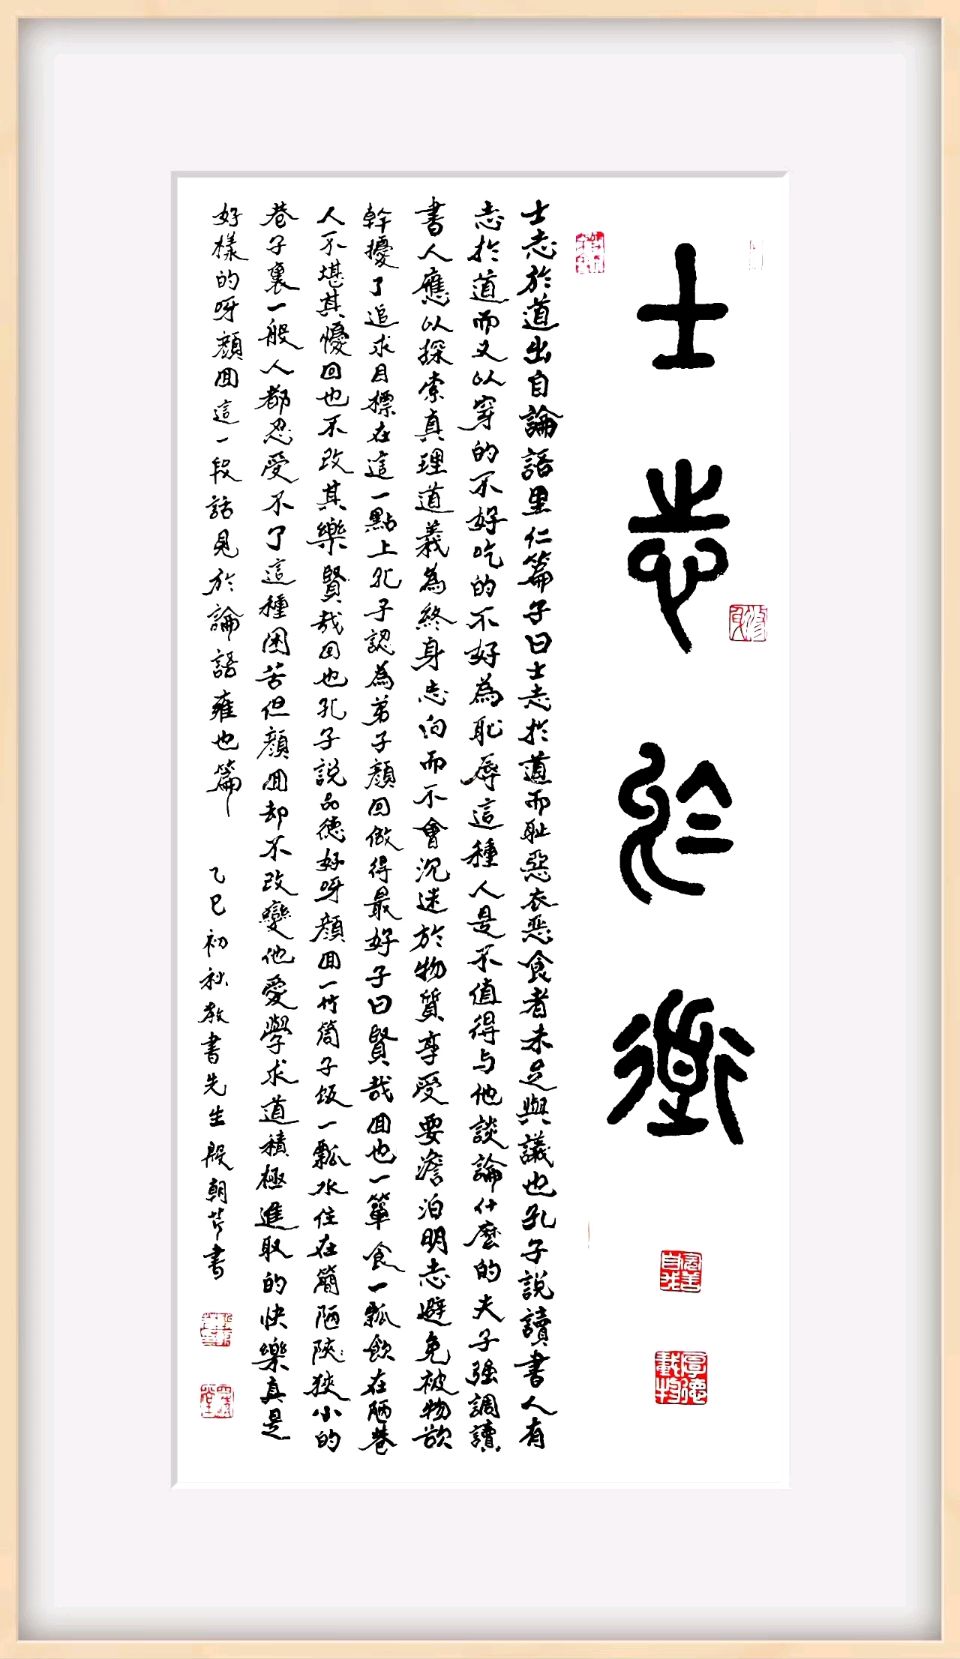 士志於道
士志於道出自論語里仁篇子曰士志於道而耻惡衣惡食者未足與議也孔子說讀書人有
志於道而又以穿的不好吃的不好為恥辱這種人是不值得与他談論什麼的夫子強調讀
書人應以探索真理道義為終身志向而不會沉迷於物質享受要澹泊明志避免被物欲
幹擾了追求目標在這一點上孔子認為弟子顏回做得最好子曰賢哉回也一簞食一瓢飲在陋巷
人不堪其憂回也不改其樂賢哉回也孔子說品德好呀顏回一竹筒子飯一瓢水住在簡陋陝狹小的
巷子裏一般人都忍受不了這種困苦但顏回却不改變他愛學求道積極進取的快樂真是
好樣的呀顏回這一段話見於論語雍也篇
乙巳初秋教書先生殷朝芹書
厚德載物